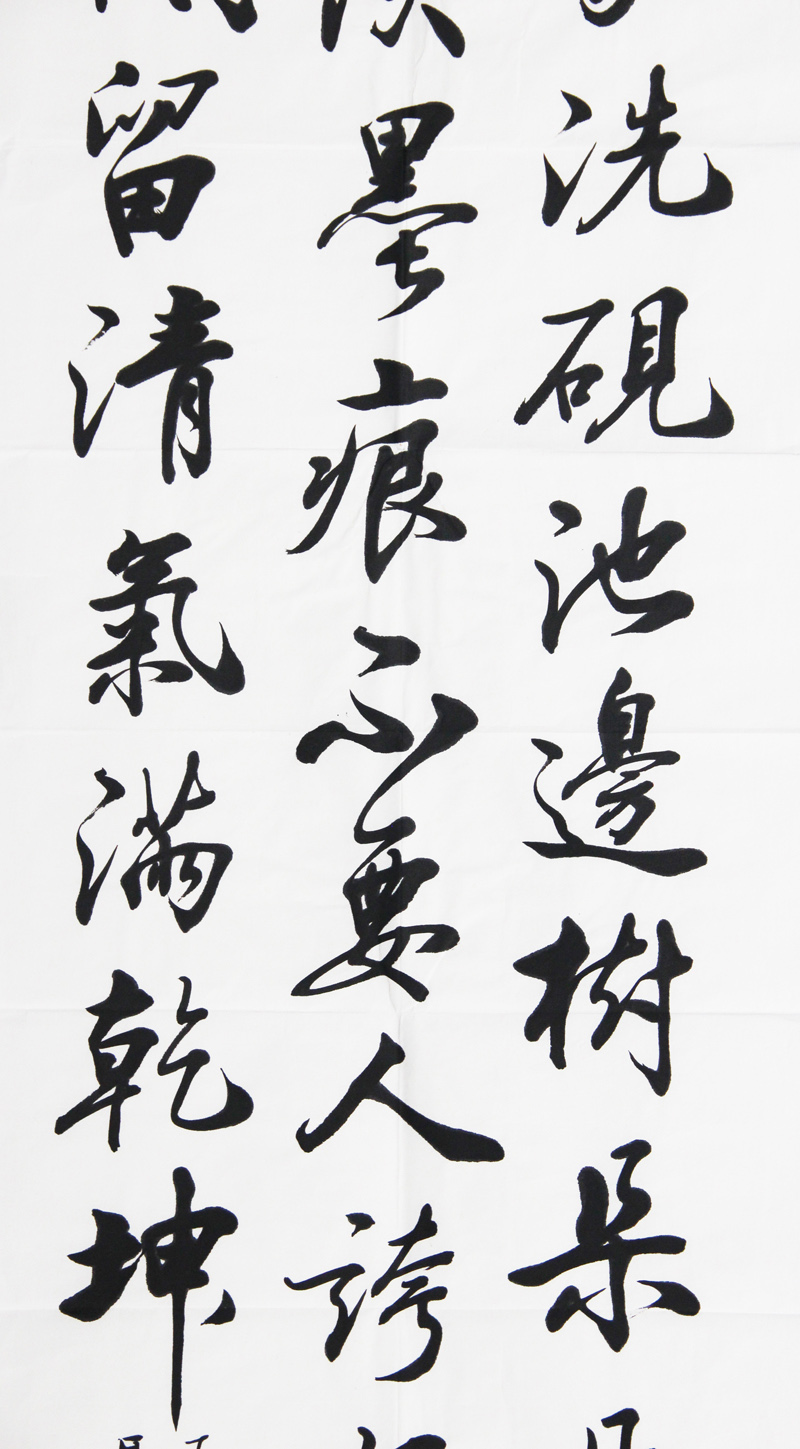 洗硯池邊樹朵
墨痕不要人誇
留清氣滿乾坤